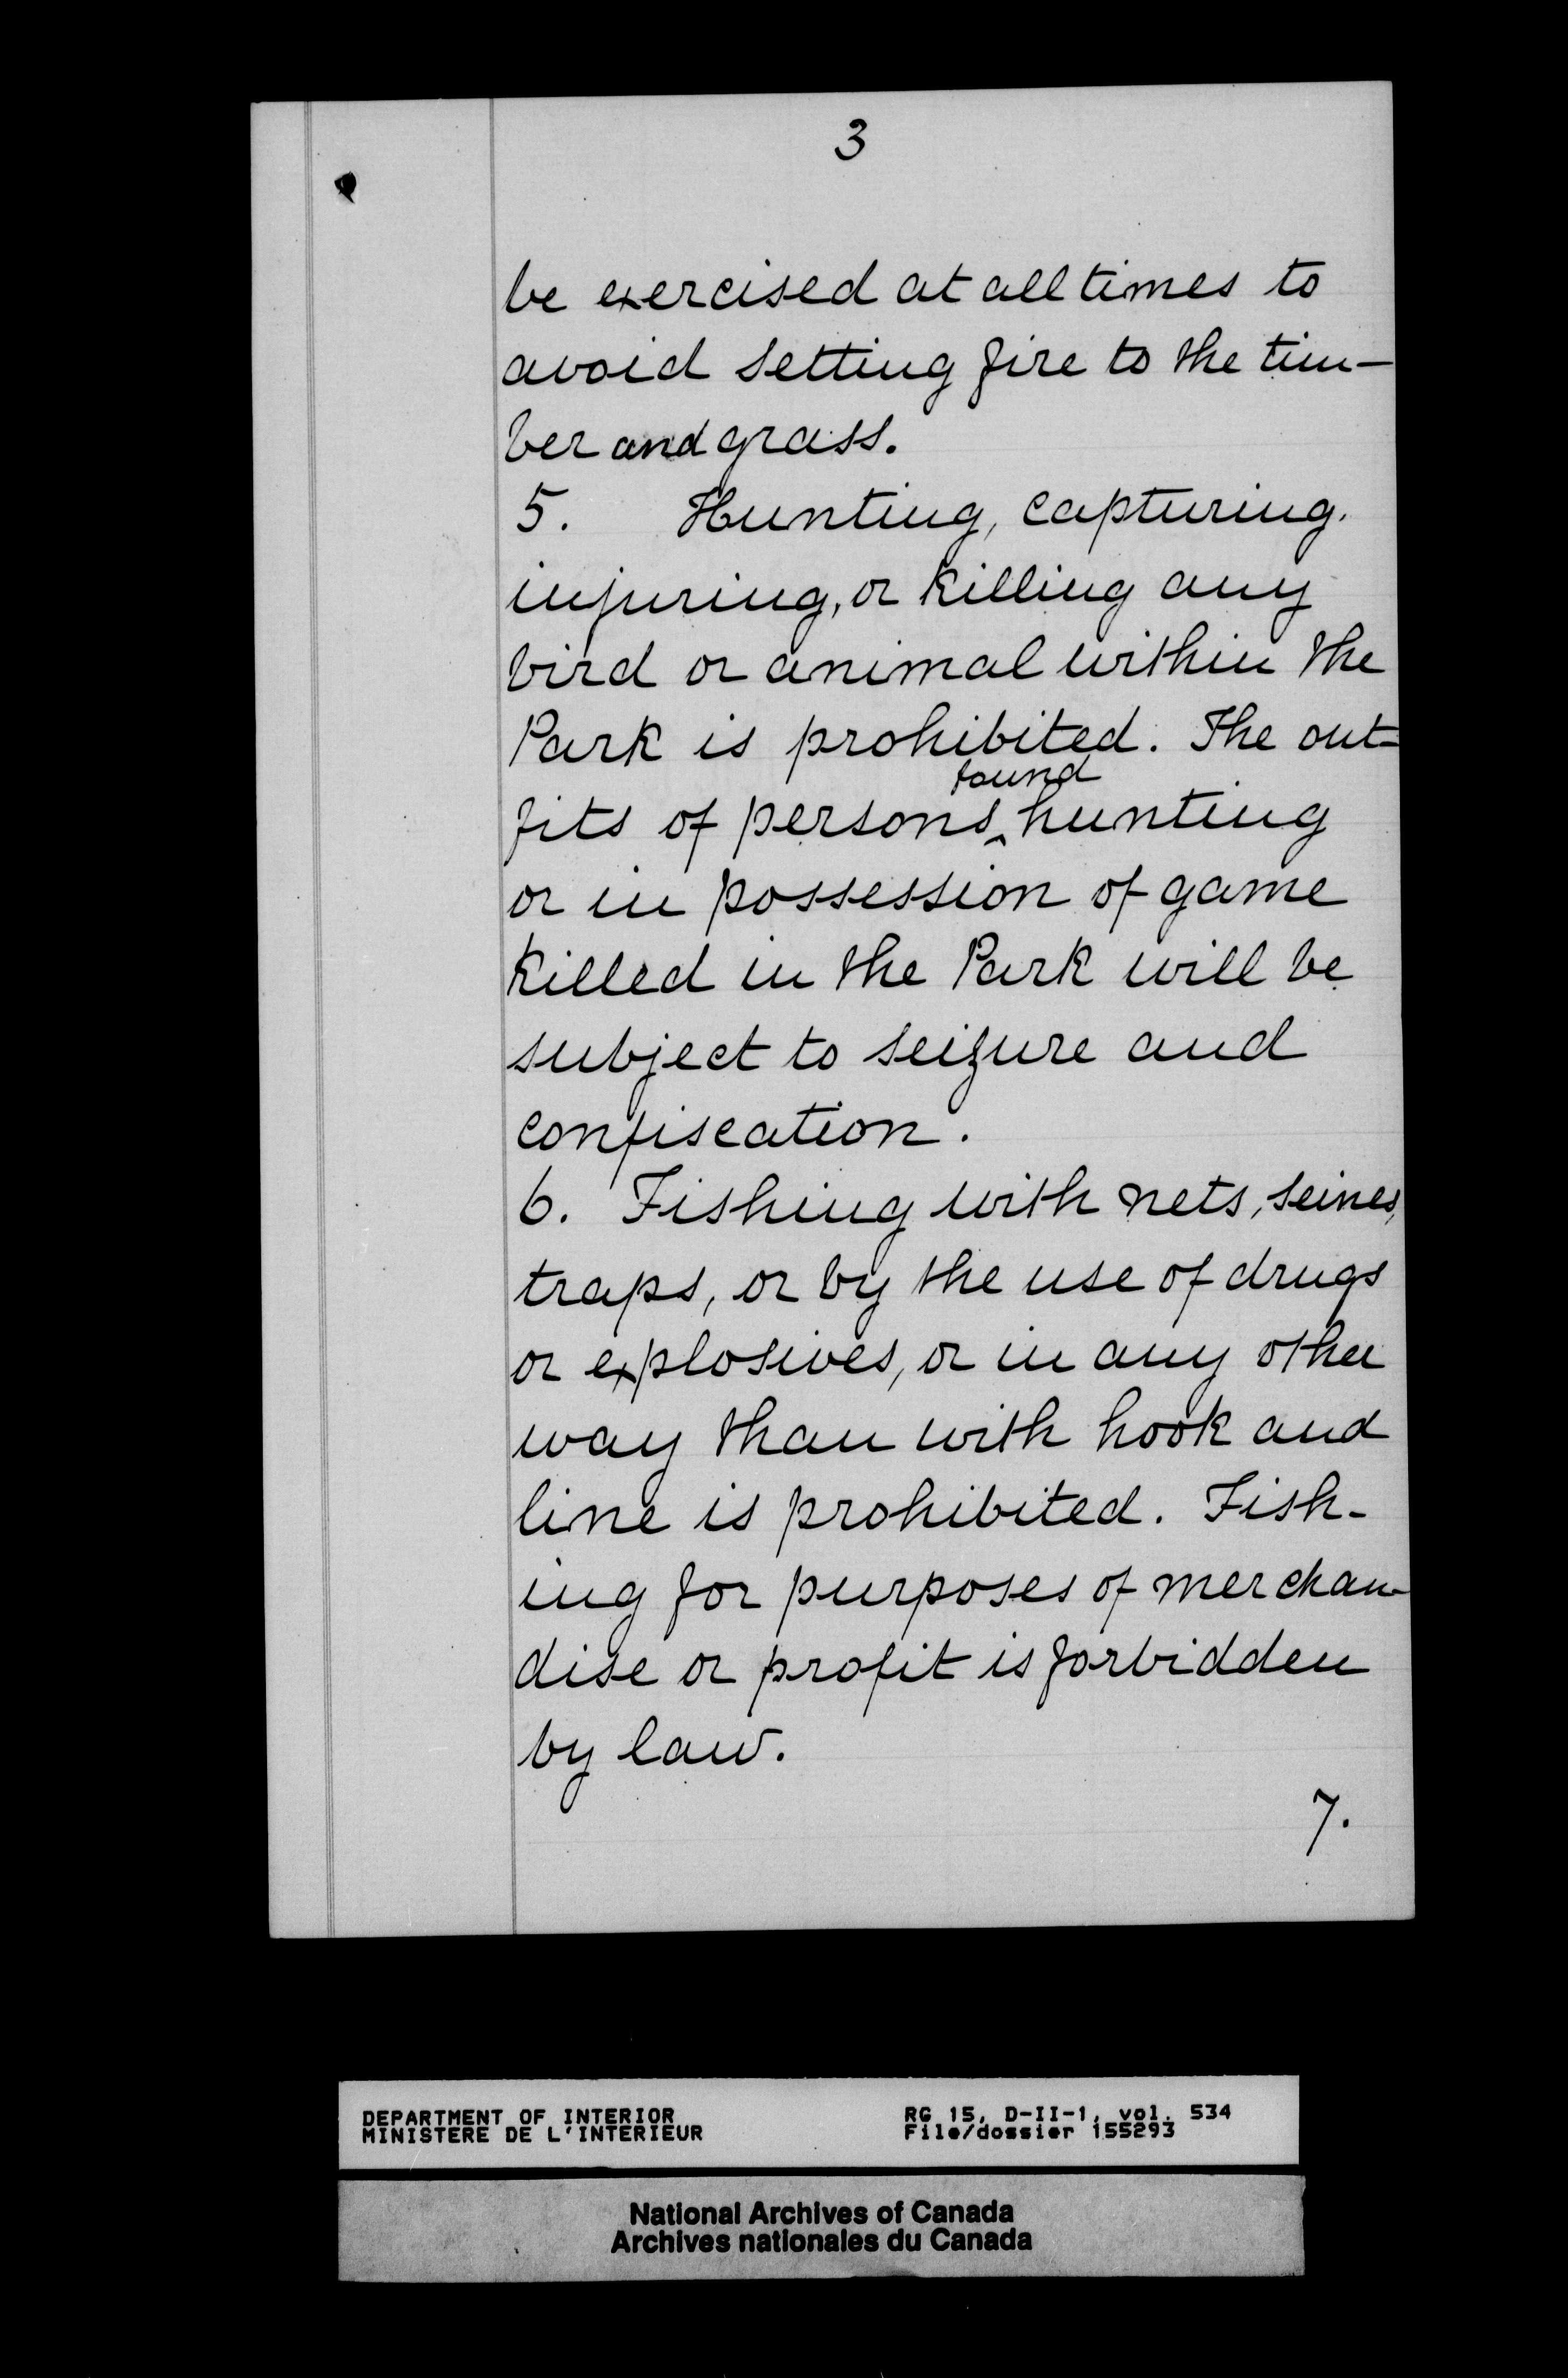 3
be exercised at all times to
avoid setting fire to the tim-
ber and grass.
5. Hunting, capturing.
injuring, or killing any
bird or animal within the
Park is prohibited. The out-
found
fits of persons ‸ hunting
or in possession of game
killed in the Park will be
subject to seizure and
confiscation.
6. Fishing with nets, seines,
traps, or by the use of drugs
or explosives, or in any other
way than with hook and
line is prohibited. Fish-
ing for purposes of merchan-
dise or profit is forbidden
by law.
7.
DEPARTMENT OF INTERIOR
MINISTERE DE L'INTERIEUR
RG 15, D-II-1, vol. 534
File/dossier 155293
National Archives of Canada
Archives nationales du Canada